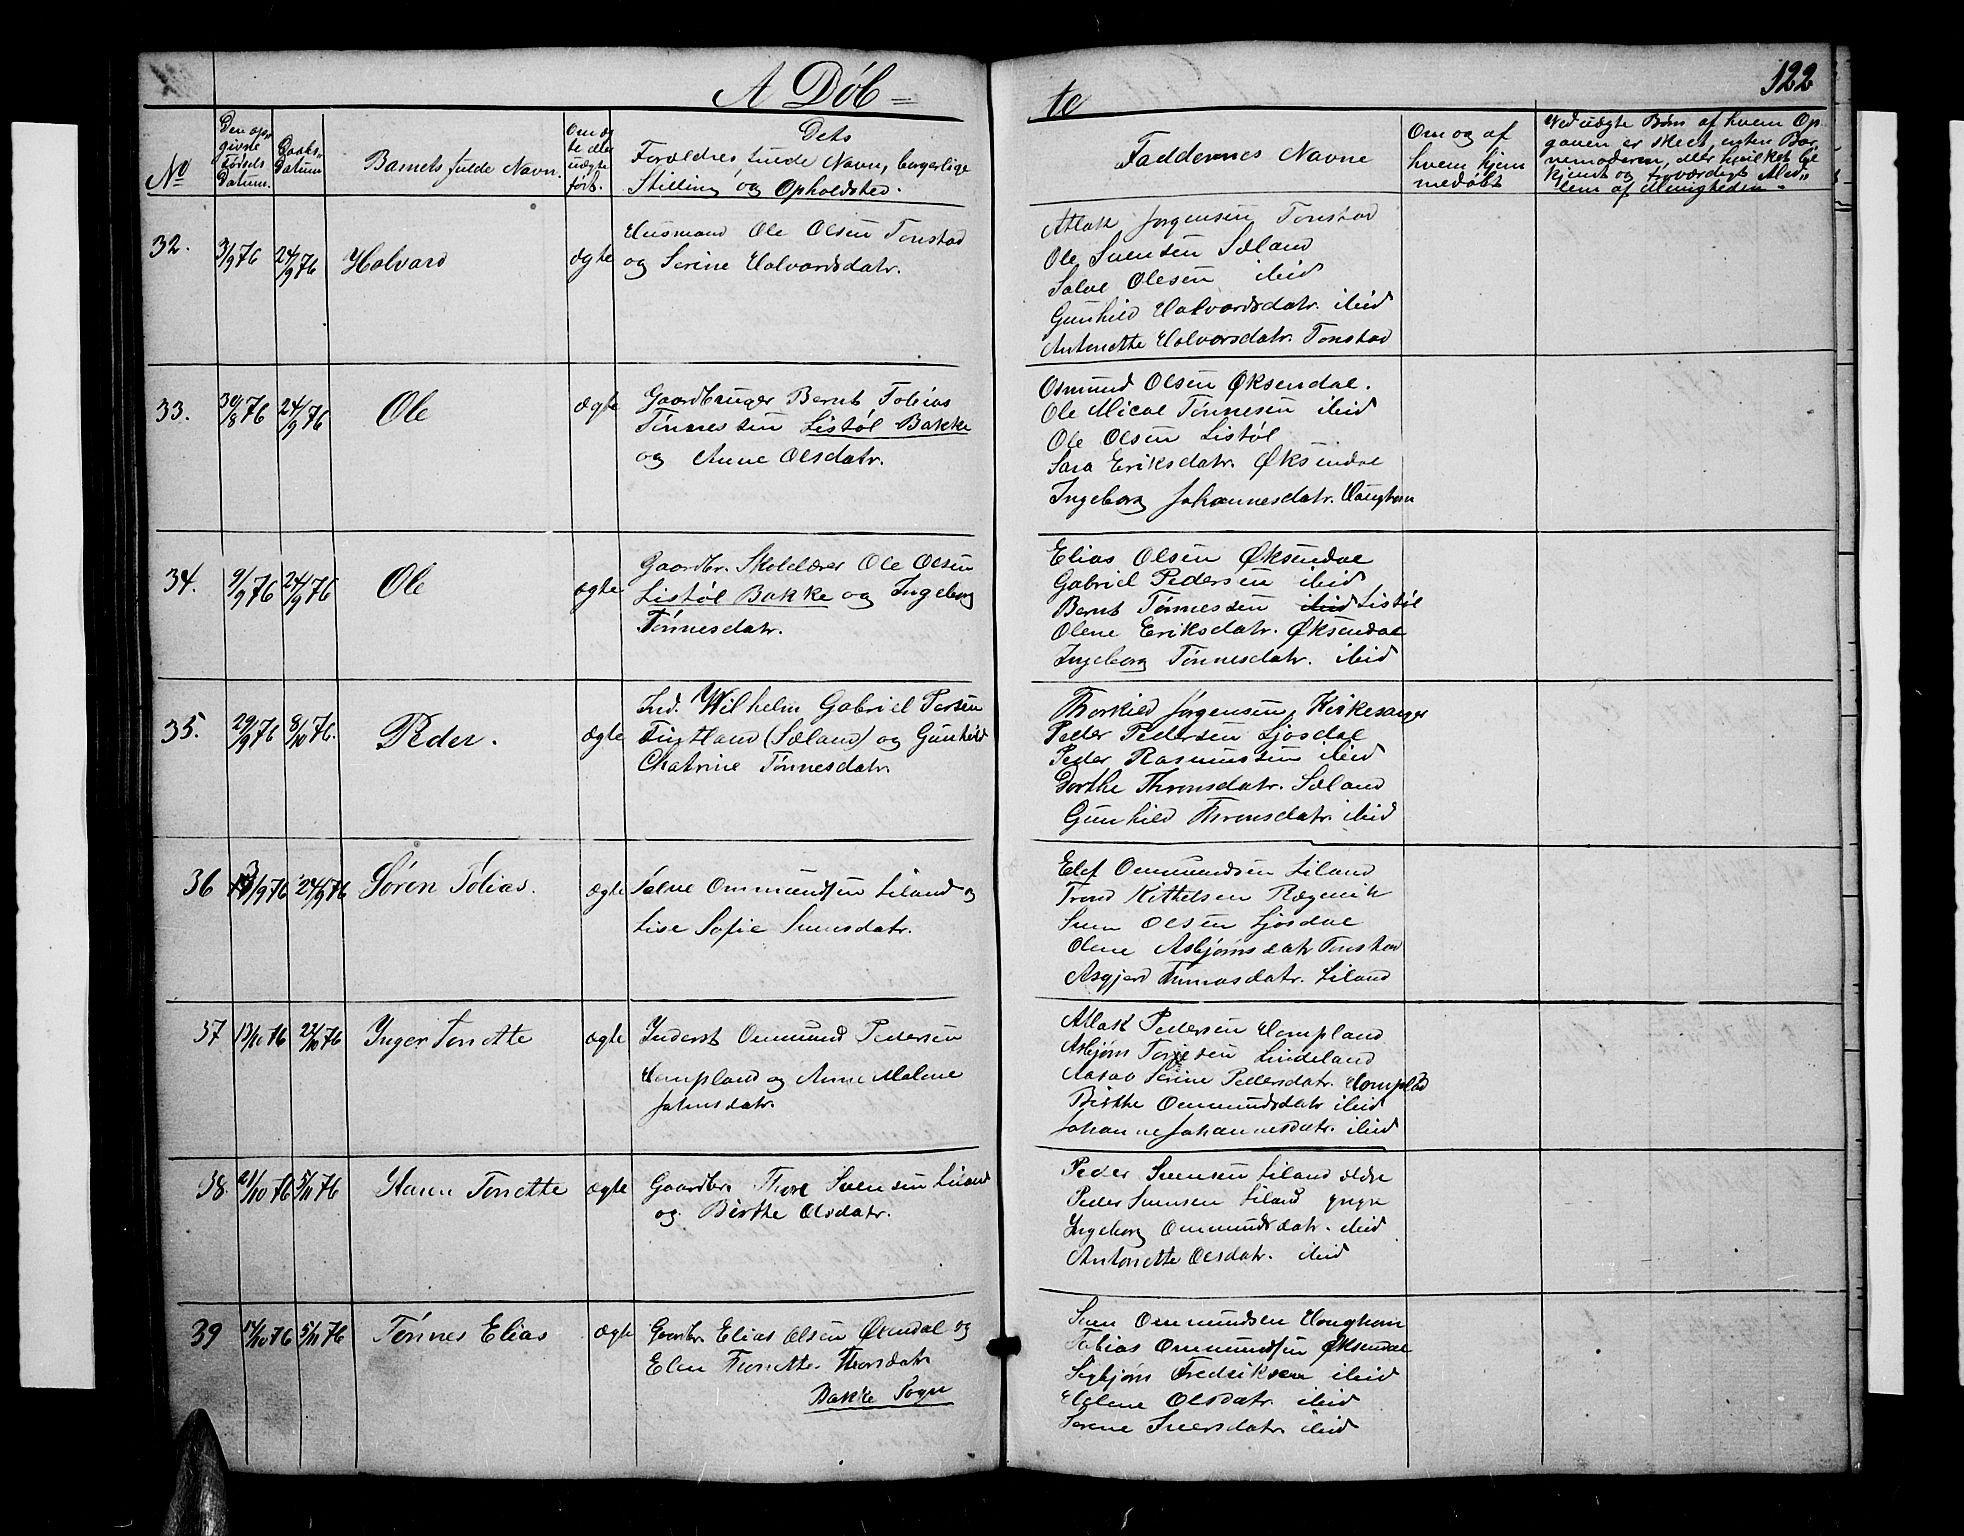 A Døb=
te
122
No
Den op-
givne
Fødsels
Datum.
Daabs-
Datum
Barnets fulde Navn.
Om æg
te eller
uægte
født.
Dets
Forældres fulde Navn, borgerlige
Stilling og Opholdsted.
Faddernes Navne
Om og af
hvem hjem
medøbt
Ved uægte Børn af hvem Op
gaven er skeet, enten Bar
nemoderen, eller hvilket be
kjendt og troværdigt Med-
lem af Menigheden.
32.
3/9 76
24/9 76
Halvard
ægte
Husmand Ole Olsen Tonstad
og Serine Halvordsdatr.
Atlak Jørgensen Tonstad
Ole Svensen Sæland
Salve Olesen ibid
Gunhild Halvordsdatr. ibid
Antonette Halvorsdatr. Tonstad
33.
30/8 76
24/9 76
Ole
ægte
Gaardbruger Bernt Tobias
Tønnessen Listøl Bakke
og Anne Olsdatr.
Osmund Olsen Øksendal.
Ole Mical Tønnesen ibid
Ole Olsen Listøl
Sara Eriksdatr. Øksendal
Ingeborg Johannesdatr. Haughom
34.
9/9 76
24/9 76
Ole
ægte
Gaardbr. Skolelærer Ole Olsen
Listøl Bakke og Ingeborg
Tønnesdatr.
Elias Olsen Øksendal
Gabriel Pedersen ibid
Bernt Tønnessen ibid Listøl
Olene Eriksdatr. Øksendal
Ingeborg Tønnesdatr. ibid
35.
29/9 76
8/10 76.
Peder.
ægte
Ind. Wilhelm Gabriel Persen
Figtland (Sæland) og Gunhild
Chatrine Tønnesdatr.
Thorkild Jørgensen, Kirkesauger
Peder Pedersen Ljosdal
Peder Rasmussen ibid
Dorthe Thronsdatr. Sæland
Gunhild Thronsdatr. ibid
36
/9 76
24/9 76
Søren Tobias.
ægte
Salve Ommundsen Liland og
Lise Sofie Svensdatr.
Elef Ommundsen Liland
Trond Kittelsen Røgevik
Sven Olsen Ljosdal
Olene Asbjørnsdatr Tonstad
Asgjerd Tomasdatr. Liland
37
13/10 76
22/10 76
Inger Tonette
ægte
Inderst Ommund Pedersen
Hompland og Anne Malene
Johnsdatr.
Atlak Pedersen Hompland
Asbjørn Torjesen Lindeland
Aasao Serine Pedersdatr. Hompland
Birthe Ommundsdatr ibid
Johanne Johannesdatr. ibid
38.
21/10 76
5/11 76
Karen Tonette
ægte
Gaardbr. Thore Svensen Liland
og Birthe Olsdatr.
Peder Svensen Liland ældre
Peder Svensen Liland yngre
Ingeborg Ommundsdatr. ibid
Antonette Olsdatr. ibid
39
14/10 76
5/11 76
Tønnes Elias
ægte
Gaardbr. Elias Olsen Øksendal og
Elen Tronette Thorsdatr.
Bakke Sogn
Sven Ommundsen Haughom
Tobias Ommundsen Øksendal
Sigbjørn Fredriksen ibid
Helene Olsdatr. ibid
Serene Iversdatr. ibid